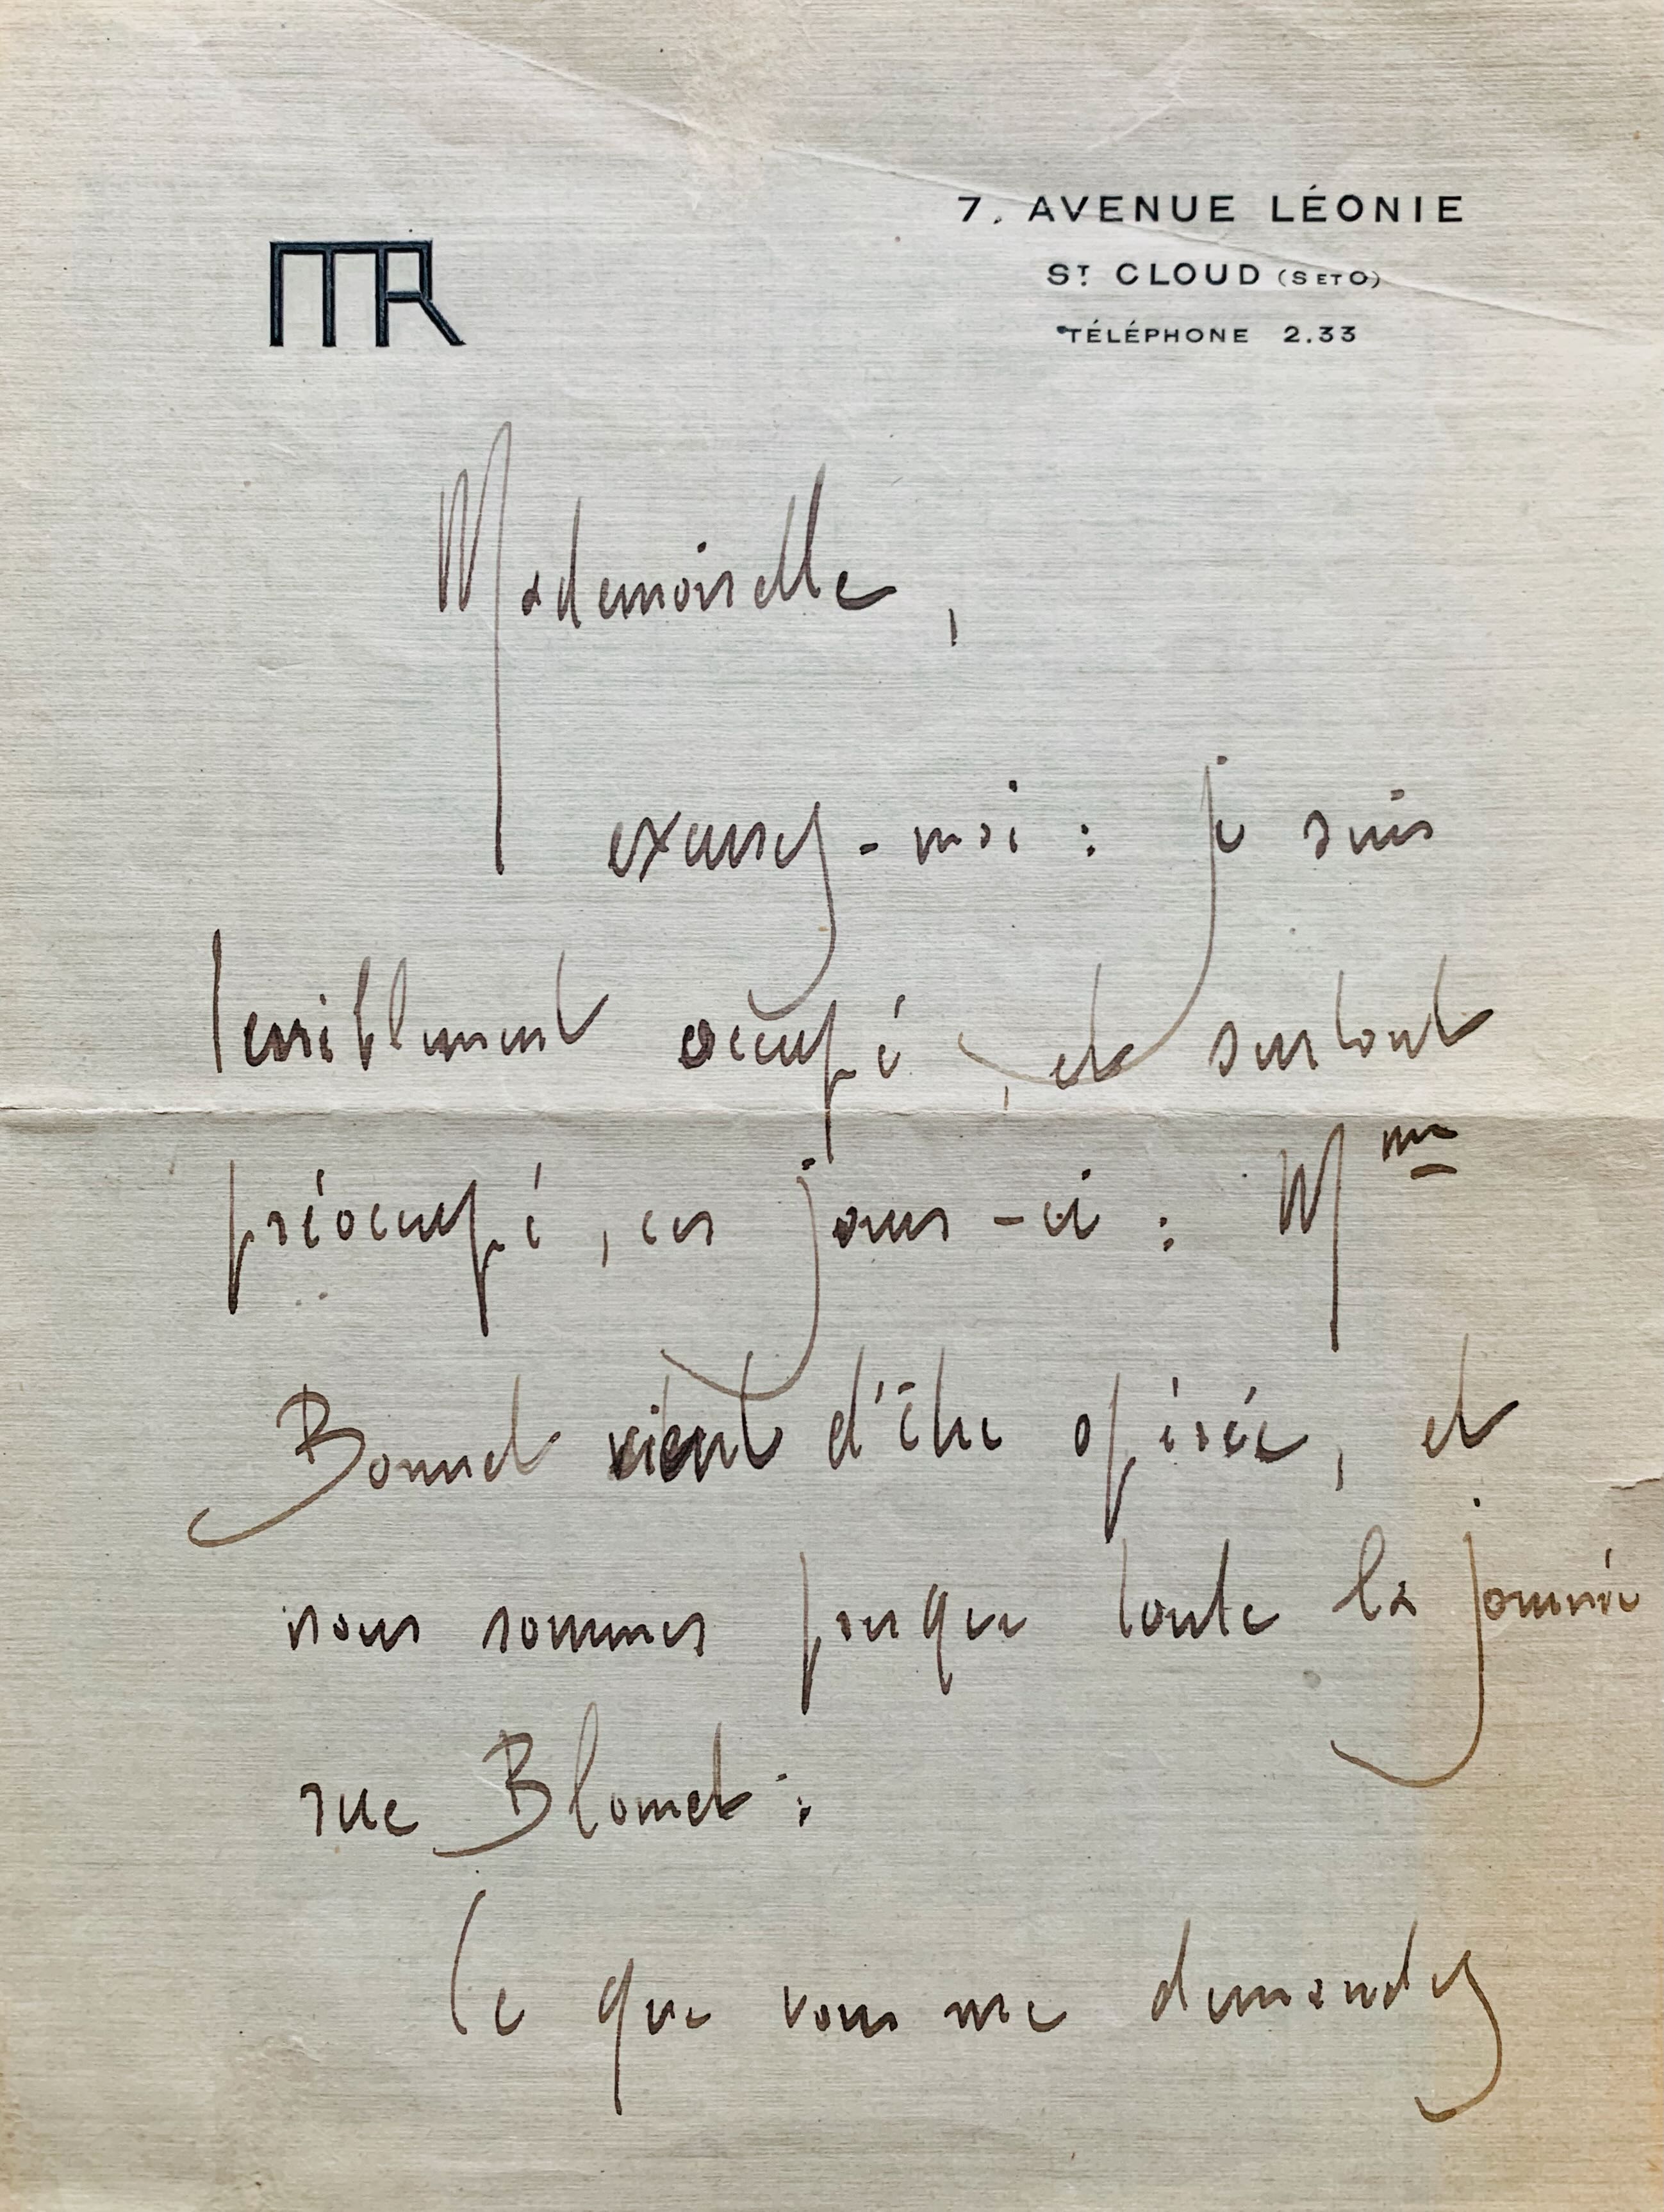 MR
7. AVENUE LÉONIE
ST CLOUD (S ET O)
TÉLÉPHONE 2.33
Mademoiselle,
excusez-moi : je suis
terriblement occupé, et surtout
préoccupé, ces jours-ci : Mme
Bonnet vient d'être opérée, et
nous sommes presque toute la journée
rue Blomet :
Ce que vous me demandez